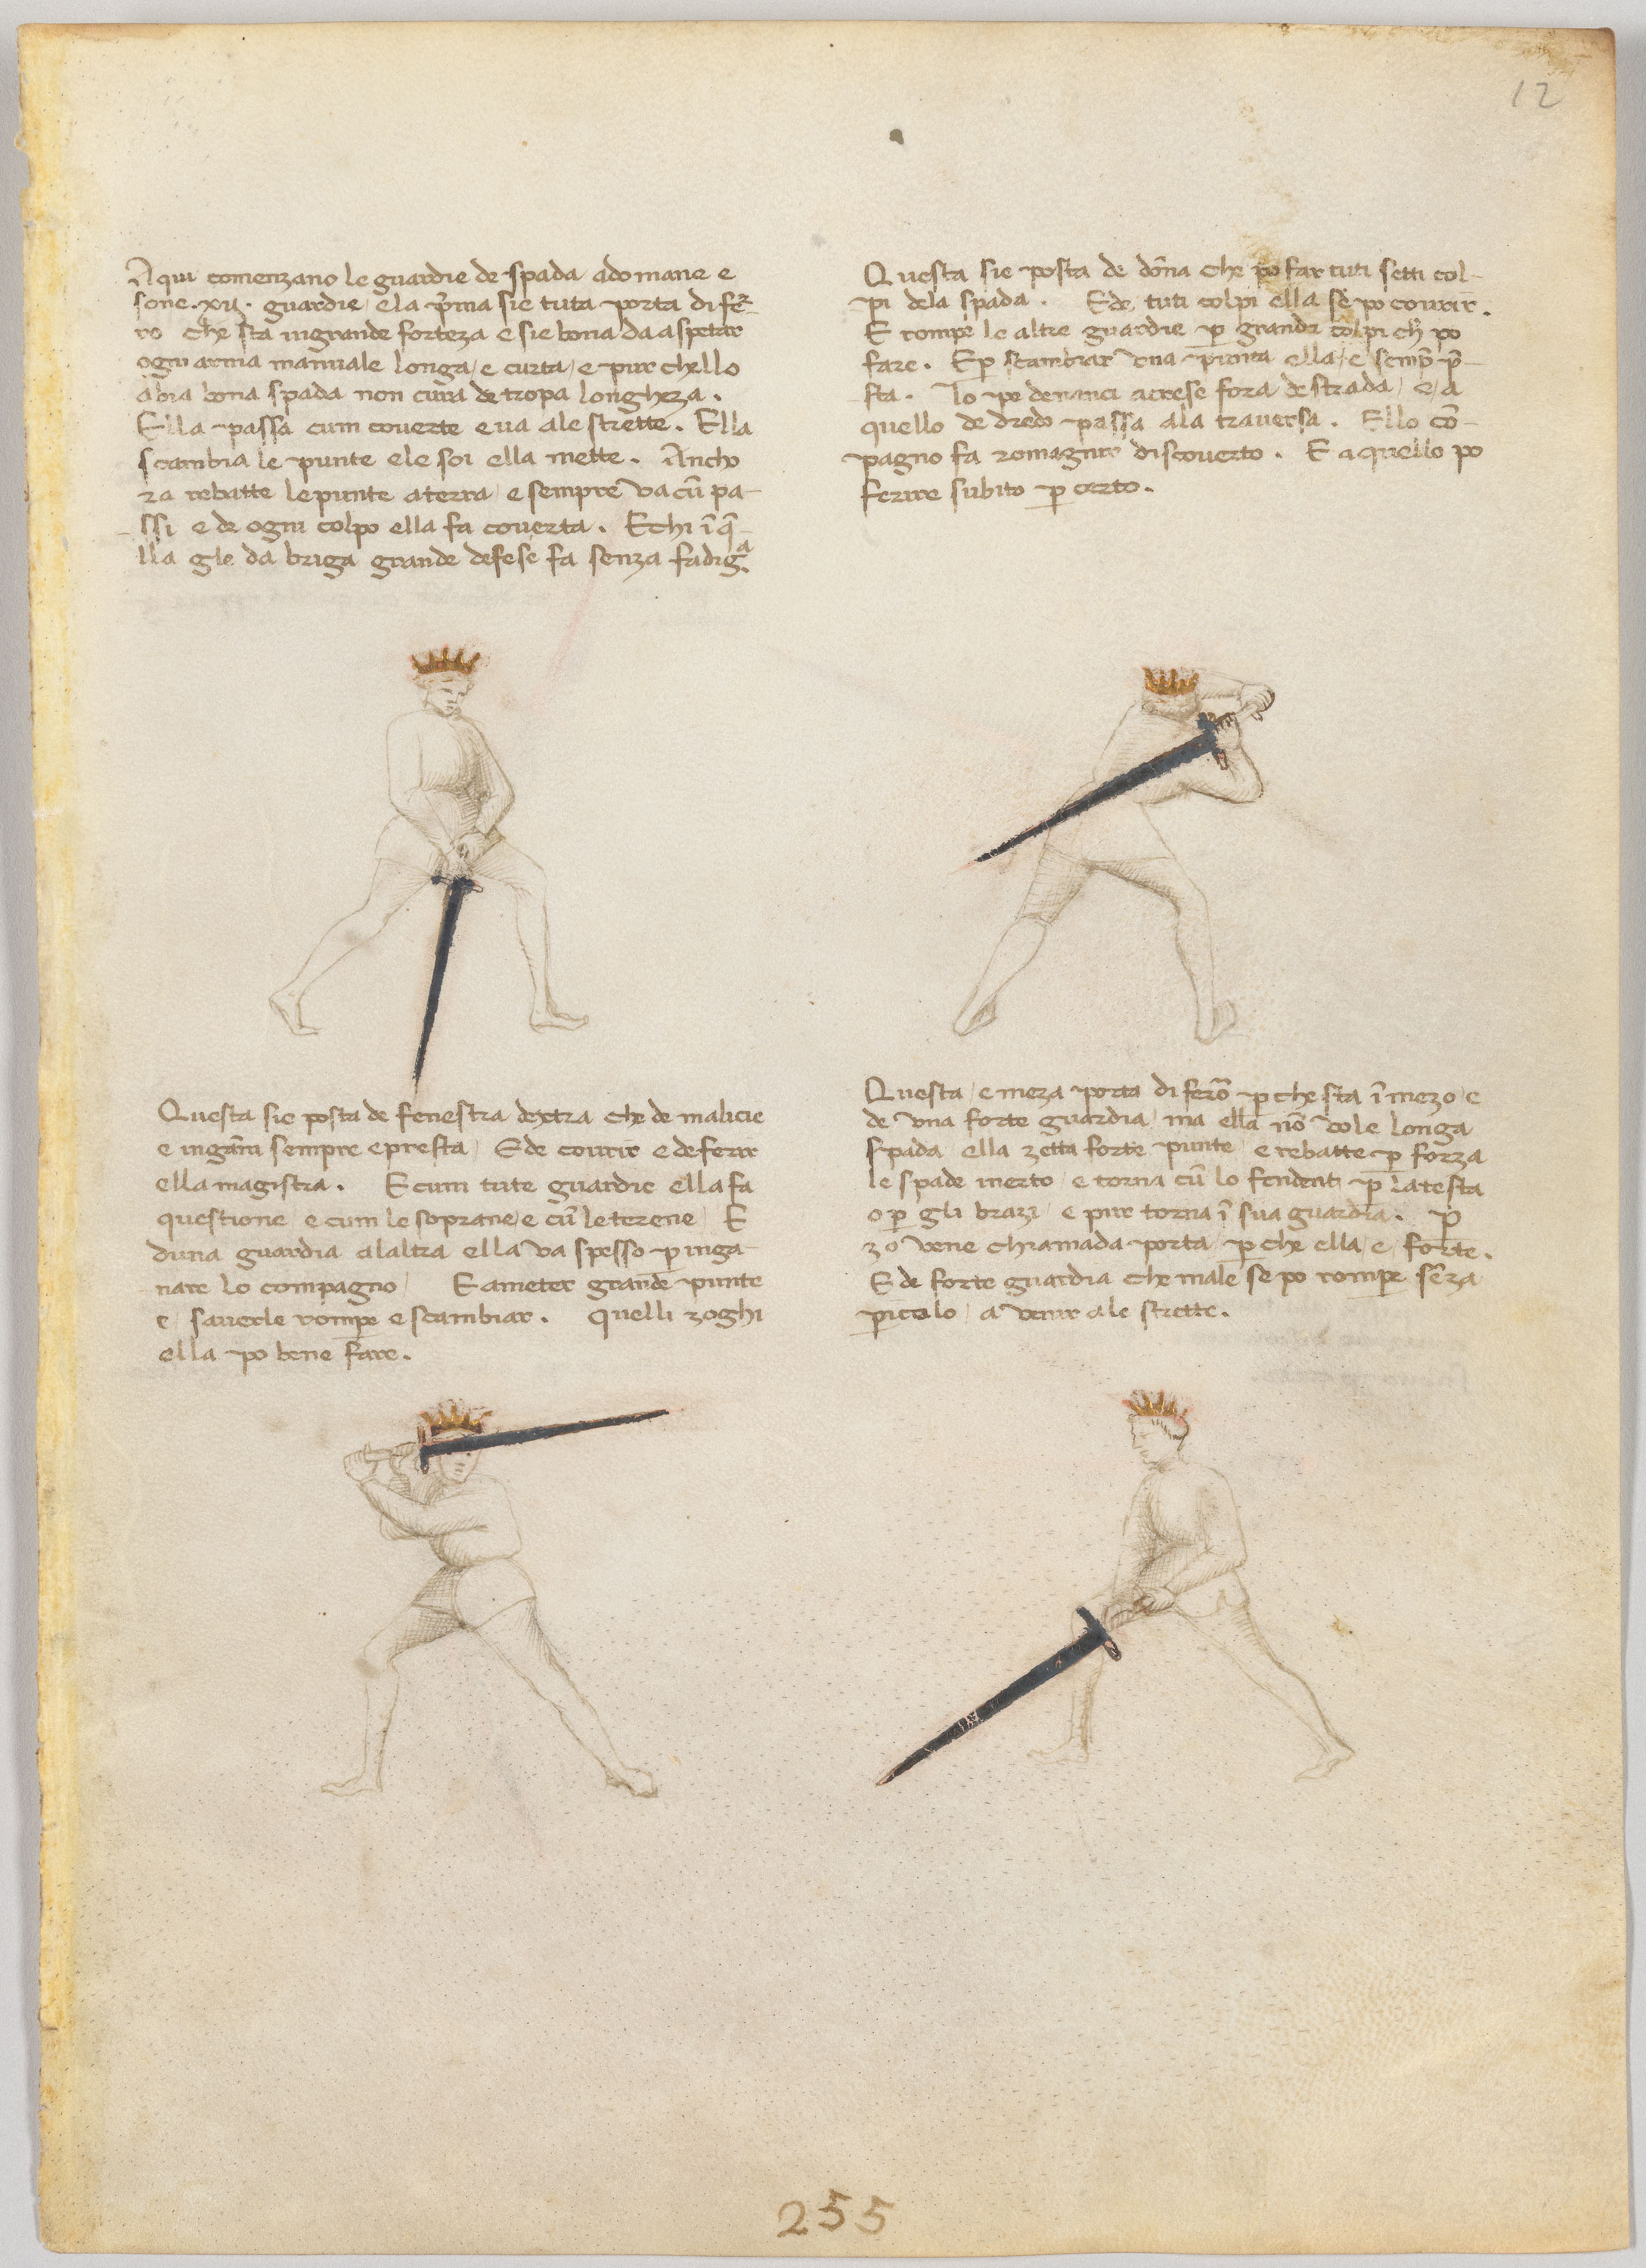 12
Aqui comenzano le guardie de spada ado mane e
sone .xii. guardie e la p̄ma sie tuta porta di fe͂r-
ro che sta in grande forteza e sie bona da aspetar
ogni arma manuale longa e curta e pur chello
abia bona spada non cura de tropa longheza.
Ella passa cum coverte e va ale strette. Ella
scambia le punte e le soi ella mette. Ancho
ra rebatte le punte a terra e sempre va cū pa-
ssi e de ogni colpo ella fa coverta. E chi ī q̄-
lla gle da briga grande defese fa senza fadiga.
Questa sie posta de dōna che po far tuti setti col-
pi dela spada. E de tuti colpi ella se po covrir.
E rompe le altre guardie p̱ grandi colpi ch̄ po
fare. E p̱ scambiar una punta ella e semp̄ p̄-
sta. Lo pe denanci acrese fora de strada e a
quello de dredo passa ala traversa. E llo cō-
pagno fa romagnir discoverto. E a quello po
ferire subito p̱ certo.
Questa sie posta de fenestra dextra che de malicie
e ingāni sempre e presta E de covrir e de ferir
ella magistra. E cum tute guardie ella fa
questione e cum le soprane e cū le terene E
duna guardia alaltra ella va spesso p̱ inga-
nare lo compagno E a meter grande punte
e saverle romp̱e e scambiar. Quelli zoghi
ella po bene fare.
Questa e meza porta di ferō p̱ che sta ī mezo e
de una forte guardia ma ella nō vole longa
spada ella zetta forte punte e rebatte p̱ forza
le spade inerto e torna cū lo fendenti p̱ la testa
o p̱ gli brazi e pur torna ī sua guardia. P̱
zo vene chiamada porta p̱ che ella e forte.
E de forte guardia che male se po romp̱e sēza
p̱icolo a venir ale strette.
255